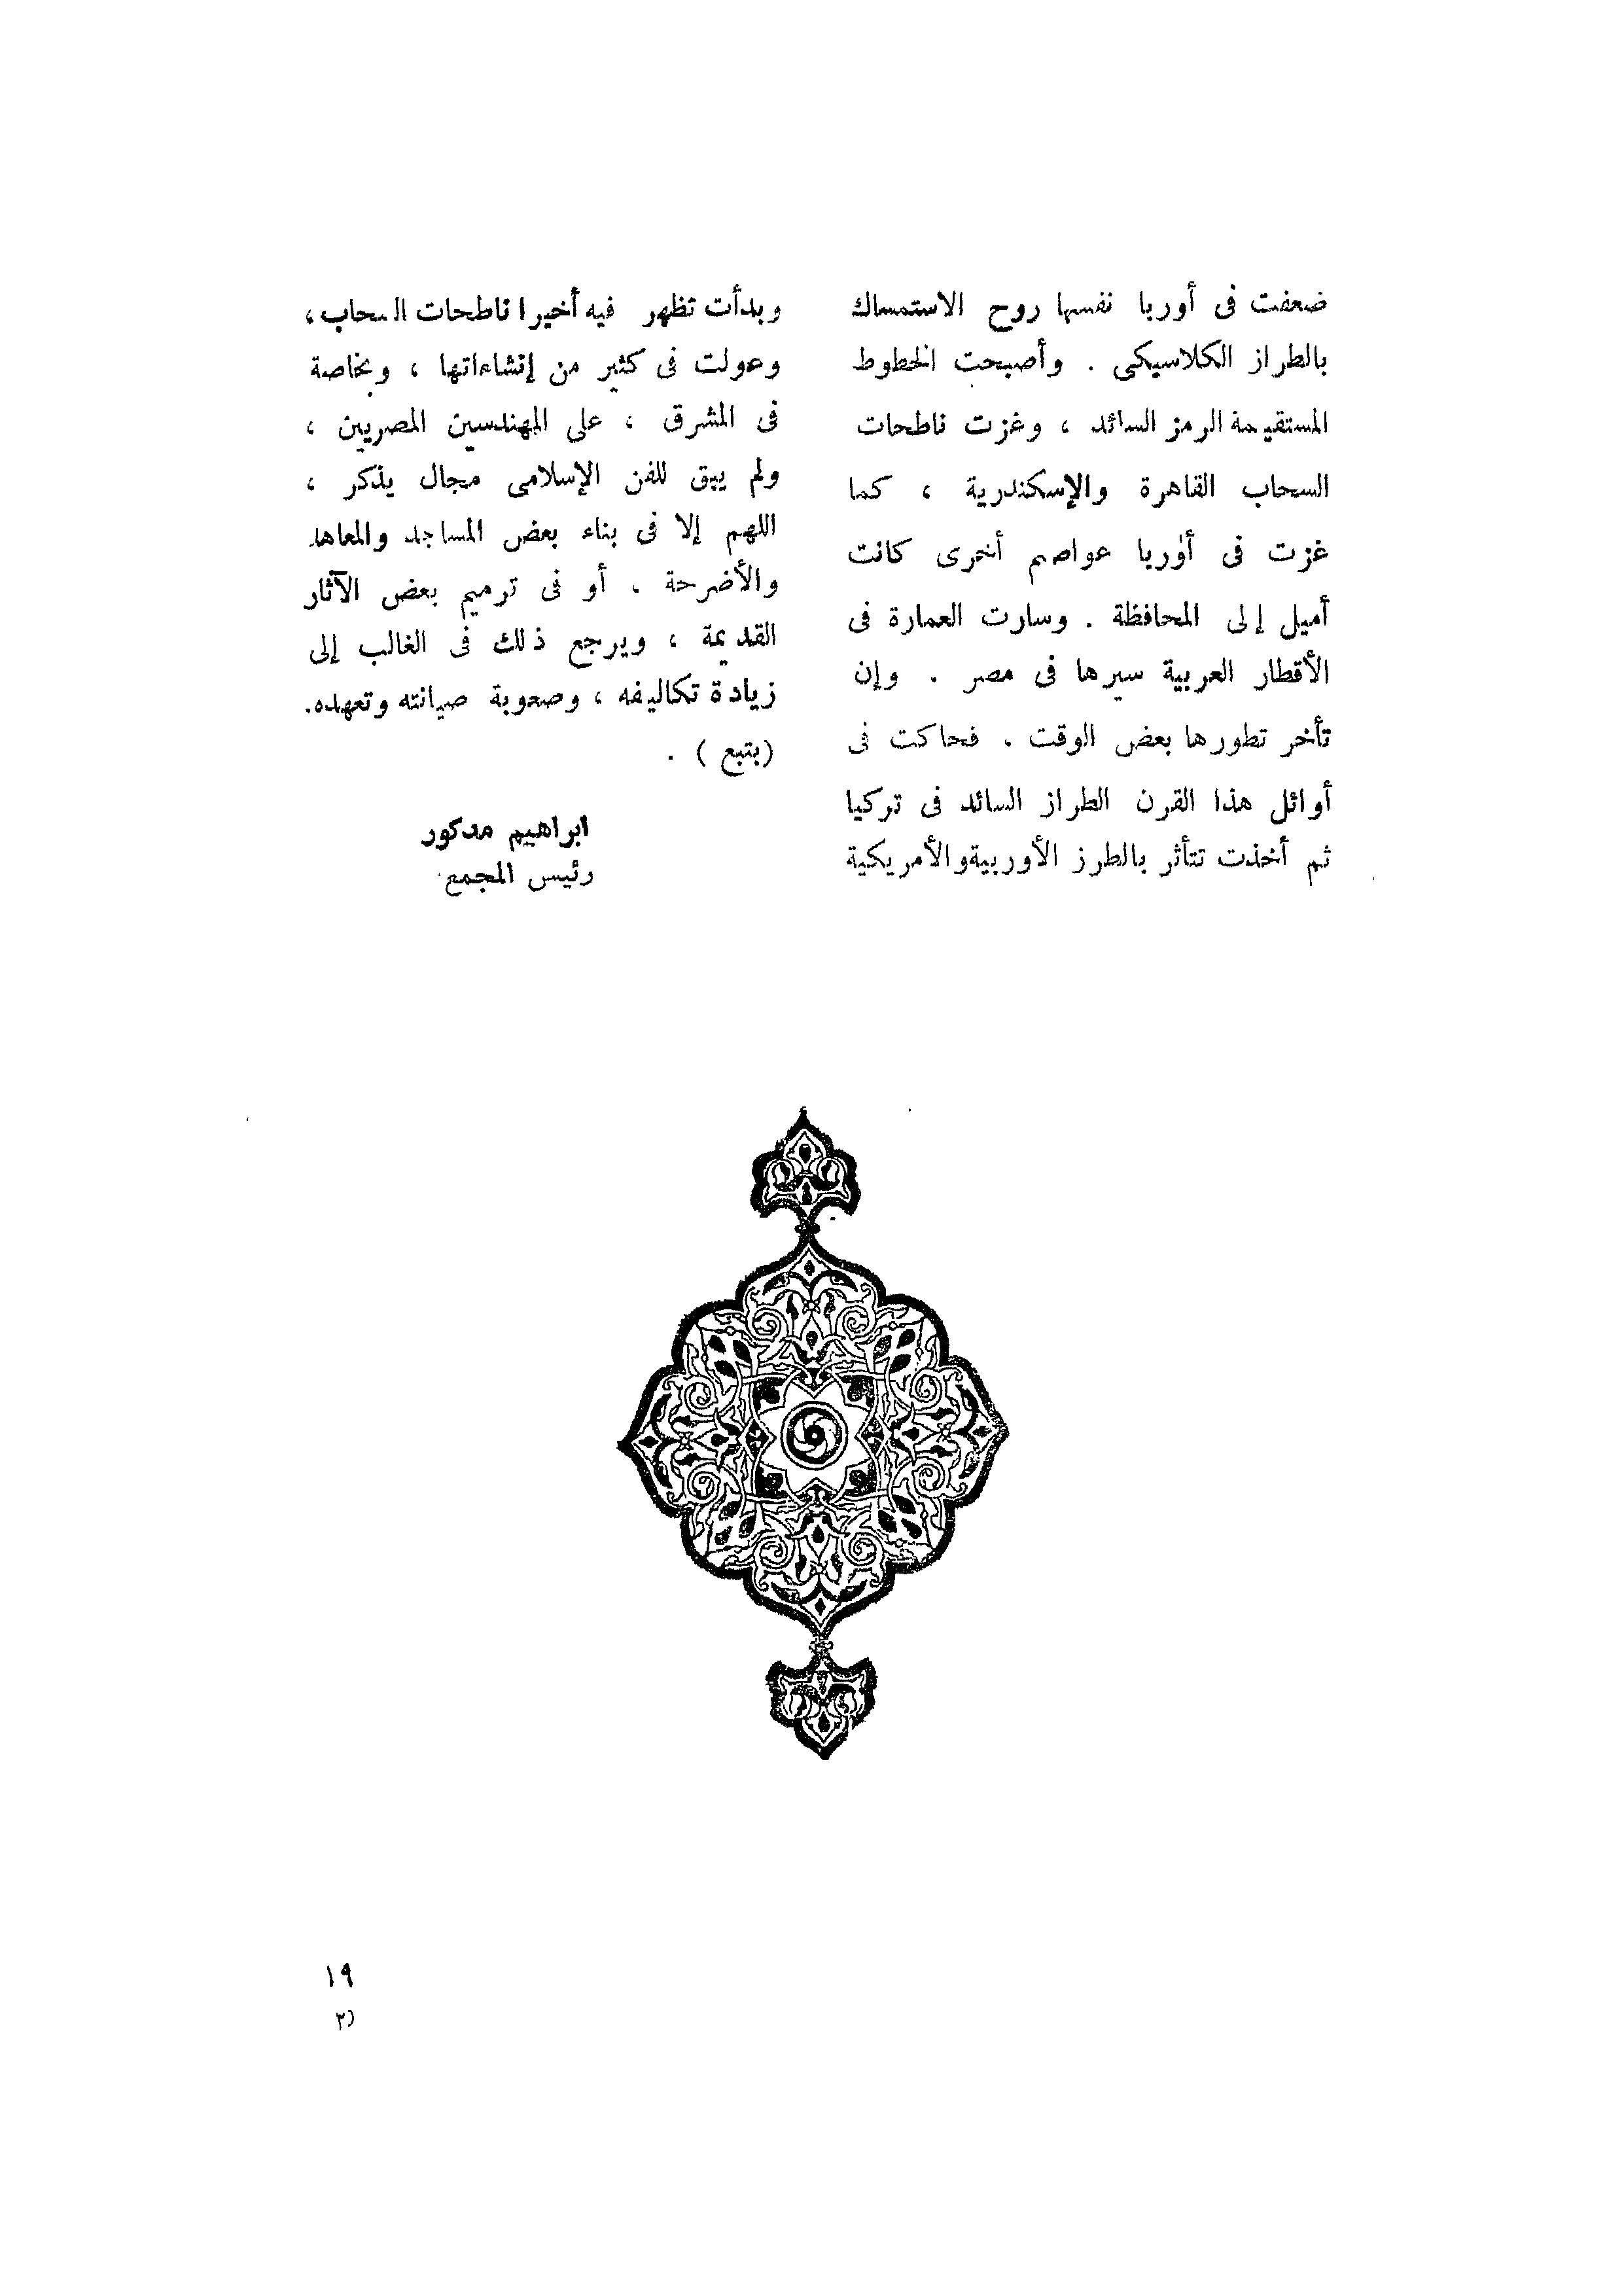 ضعفت فى أوربا نفسها روح الاستمساك
بالطراز الكلاسيكى . وأصبحت الخطوط
المستقيمة الرمز السائد ، وغزت ناطحات
السحاب القاهرة والإسكندرية ، كما
غزت فى أوربا عواصم أخرى كانت
أميل إلى المحافظة . وسارت العمارة فى
الأقطار العربية سيرها فى مصر . وإن
تأخر تطورها بعض الوقت . فحاكت فى
أوائل هذا القرن الطراز السائد فى تركيا
ثم أخذت تتأثر بالطرز الأوربية والأمريكية
وبدأت تظهر فيه أخيرا ناطحات السحاب ،
وعولت فى كثير من إنشاءاتها ، وبخاصة
فى المشرق ، على المهندسين المصريين ،
ولم يبق للفن الإسلامى مجال يذكر ،
اللهم إلا فى بناء بعض المساجد والمعاهد
والأضرحة . أو فى ترميم بعض الآثار
القديمة ، ويرجع ذلك فى الغالب إلى
زيادة تكاليفه ، وصعوبة صيانته وتعهده.
(يتبع) .
ابراهيم مدكور
رئيس المجمع
١٩